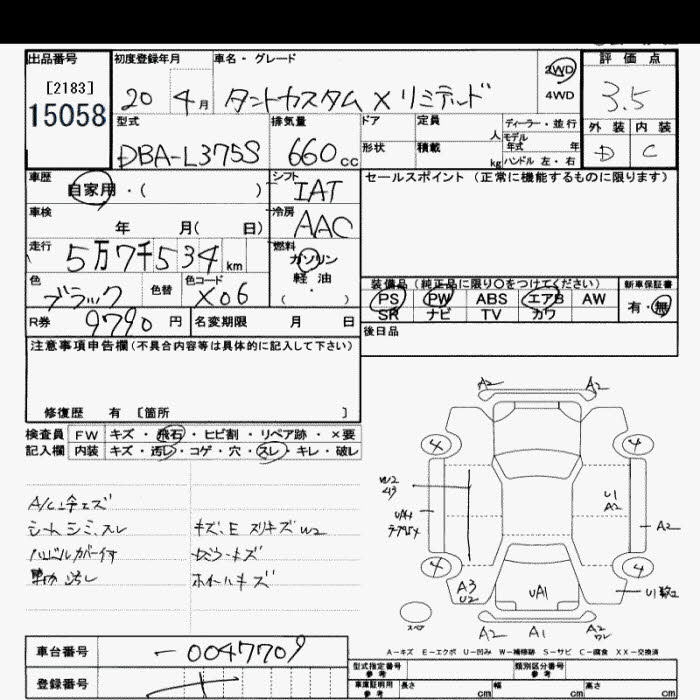 出品番号 初度登録年月 車名・グレード 2WD 評価点
[2183] 20 4月 タントカスタム X リミテッド 4WD 3.5
15058
型式 排気量 ドア 定員 人 ディーラー・並行 モデル 年式 年 外装 内装
DBA-L375S 660cc 形状 積載 kg ハンドル 左・右 D C
車歴 シフト セールスポイント (正常に機能するものに限ります)
自家用・( ) IAT
車検 冷房
年 月( 日) AAC
走行 燃料
5万7千534km ガソリン
軽油
( ・ )
色 色替 色コード 装備品 (純正品に限り○をつけてください) 新車保証書
ブラック X06 PS PW ABS エアB AW 有・無
SR ナビ TV カワ
R券 9790円 名変期限 月 日 後日品
注意事項申告欄(不具合内容等は具体的に記入して下さい)
修復歴 有 [箇所 ]
検査員 FW キズ・飛石・ヒビ割・リペア跡・×要
記入欄 内装 キズ・汚レ・コゲ・穴・スレ・キレ・破レ
シートシミ、スレ
ハンドルカバー付
汚レ
ホイールキズ
A2 A2
4 4
W2
U1
A2
A2
4 4
A3
U2
UA1
U1
A2 A1 A2
A-キズ E-エクボ U-凹み W-補修跡 S-サビ C-腐食 XX-交換済
車台番号 -0047709
登録番号
型式指定番号 参考 類別区分番号 参考
車庫証明用 参考 長さ cm 幅 cm 高さ cm